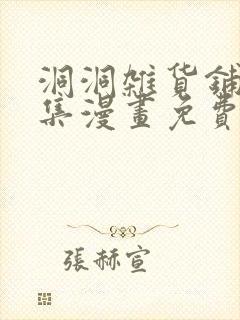 洞洞雜貨鋪
集漫畫免費
張赫宣